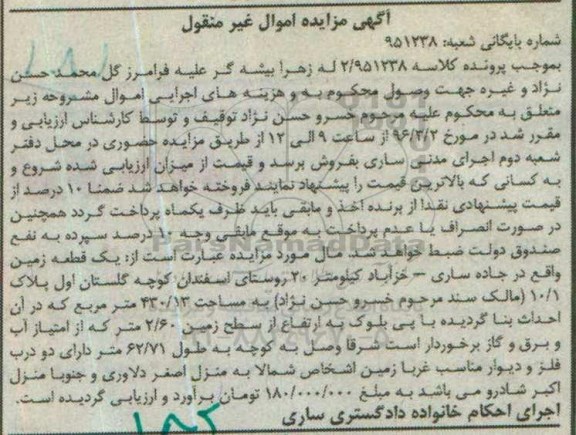 آگهی مزایده اموال غیر منقول
شماره بایگانی شعبه: ۹۵۱۲۳۸
بموجب پرونده کلاسه ۲/۹۵۱۲۳۸ له زهرا بیشه گر علیه فرامرز گل محمد حسن
نژاد و غیره جهت وصول محکوم به و هزینه های اجرایی اموال مشروحه زیر
متعلق به محکوم علیه مرحوم خسرو حسن نژاد توقیف و توسط کارشناس ارزیابی و
مقرر شد در مورخ ۹۶/۴/۲ از ساعت ۹ الی ۱۲ از طریق مزایده حضوری در محل دفتر
شعبه دوم اجرای مدنی ساری بفروش برسد و قیمت از میزان ارزیابی شده شروع و
به کسانی که بالاترین قیمت را پیشنهاد نمایند فروخته خواهد شد ضمنا ۱۰ درصد از
قیمت پیشنهادی نقدا از برنده اخذ و مابقی باید ظرف یکماه پرداخت گردد همچنین
در صورت انصراف یا عدم پرداخت به موقع مابقی وجه ۱۰ درصد سپرده به نفع
صندوق دولت ضبط خواهد شد. مال مورد مزایده عبارت است از: یک قطعه زمین
واقع در جاده ساری – خزآباد کیلومتر ۲۰ روستای اسفندان کوچه گلستان اول پلاک
۱۰/۱ (مالک سند مرحوم خسرو حسن نژاد) به مساحت ۴۳۰/۱۳ متر مربع که در آن
احداث بنا گردیده با پی بلوک به ارتفاع از سطح زمین ۲/۶۰ متر که از امتیاز آب
و برق و گاز برخوردار است شرقا وصل به کوچه به طول ۶۲/۷۱ متر دارای دو درب
فلز و دیوار مناسب غربا زمین اشخاص شمالا به منزل اصغر دلاوری و جنوبا منزل
اکبر شادرو می باشد به مبلغ ۱۸۰/۰۰۰/۰۰۰ تومان برآورد و ارزیابی گردیده است.
اجرای احکام خانواده دادگستری ساری
ParsNamadData
۱۸۲